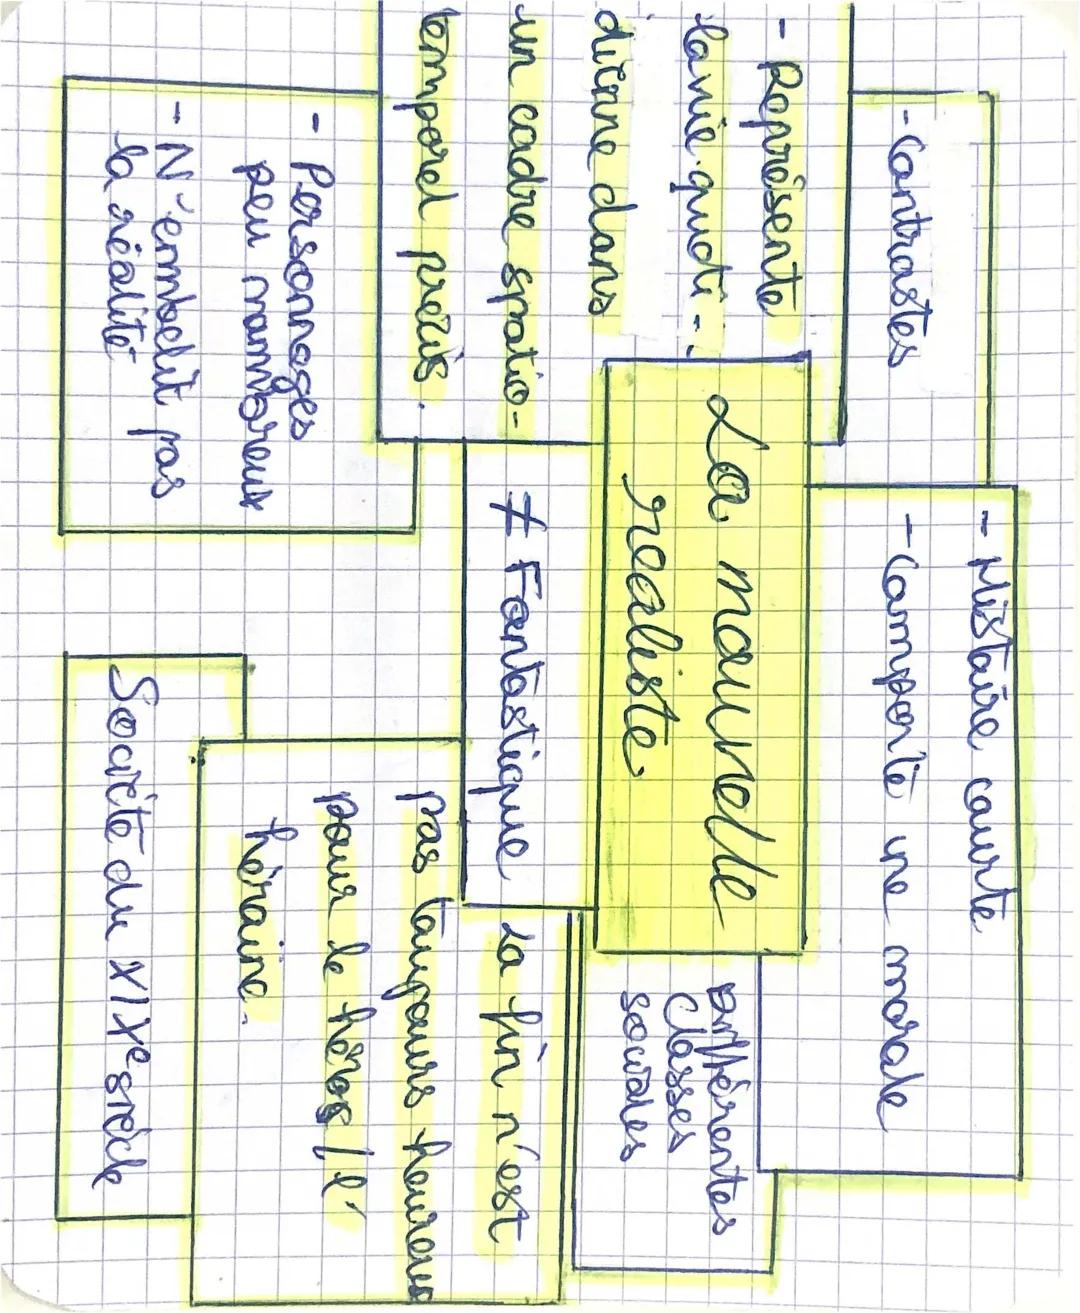 - Contrastes
- Histoire courte
- Comporte une morale
- Représente
la vie quoti-
dienne dans
un cadre spatio-
temporel précis.
La nouvelle
réaliste
Différentes
Classes
sociales
≠ Fantastique
- Personnages
peu nombreux
- N'embellit pas
la réalité
La fin n'est
pas toujours heureuse
pour le héros/l'
héroine.
Société du XIXe siècle